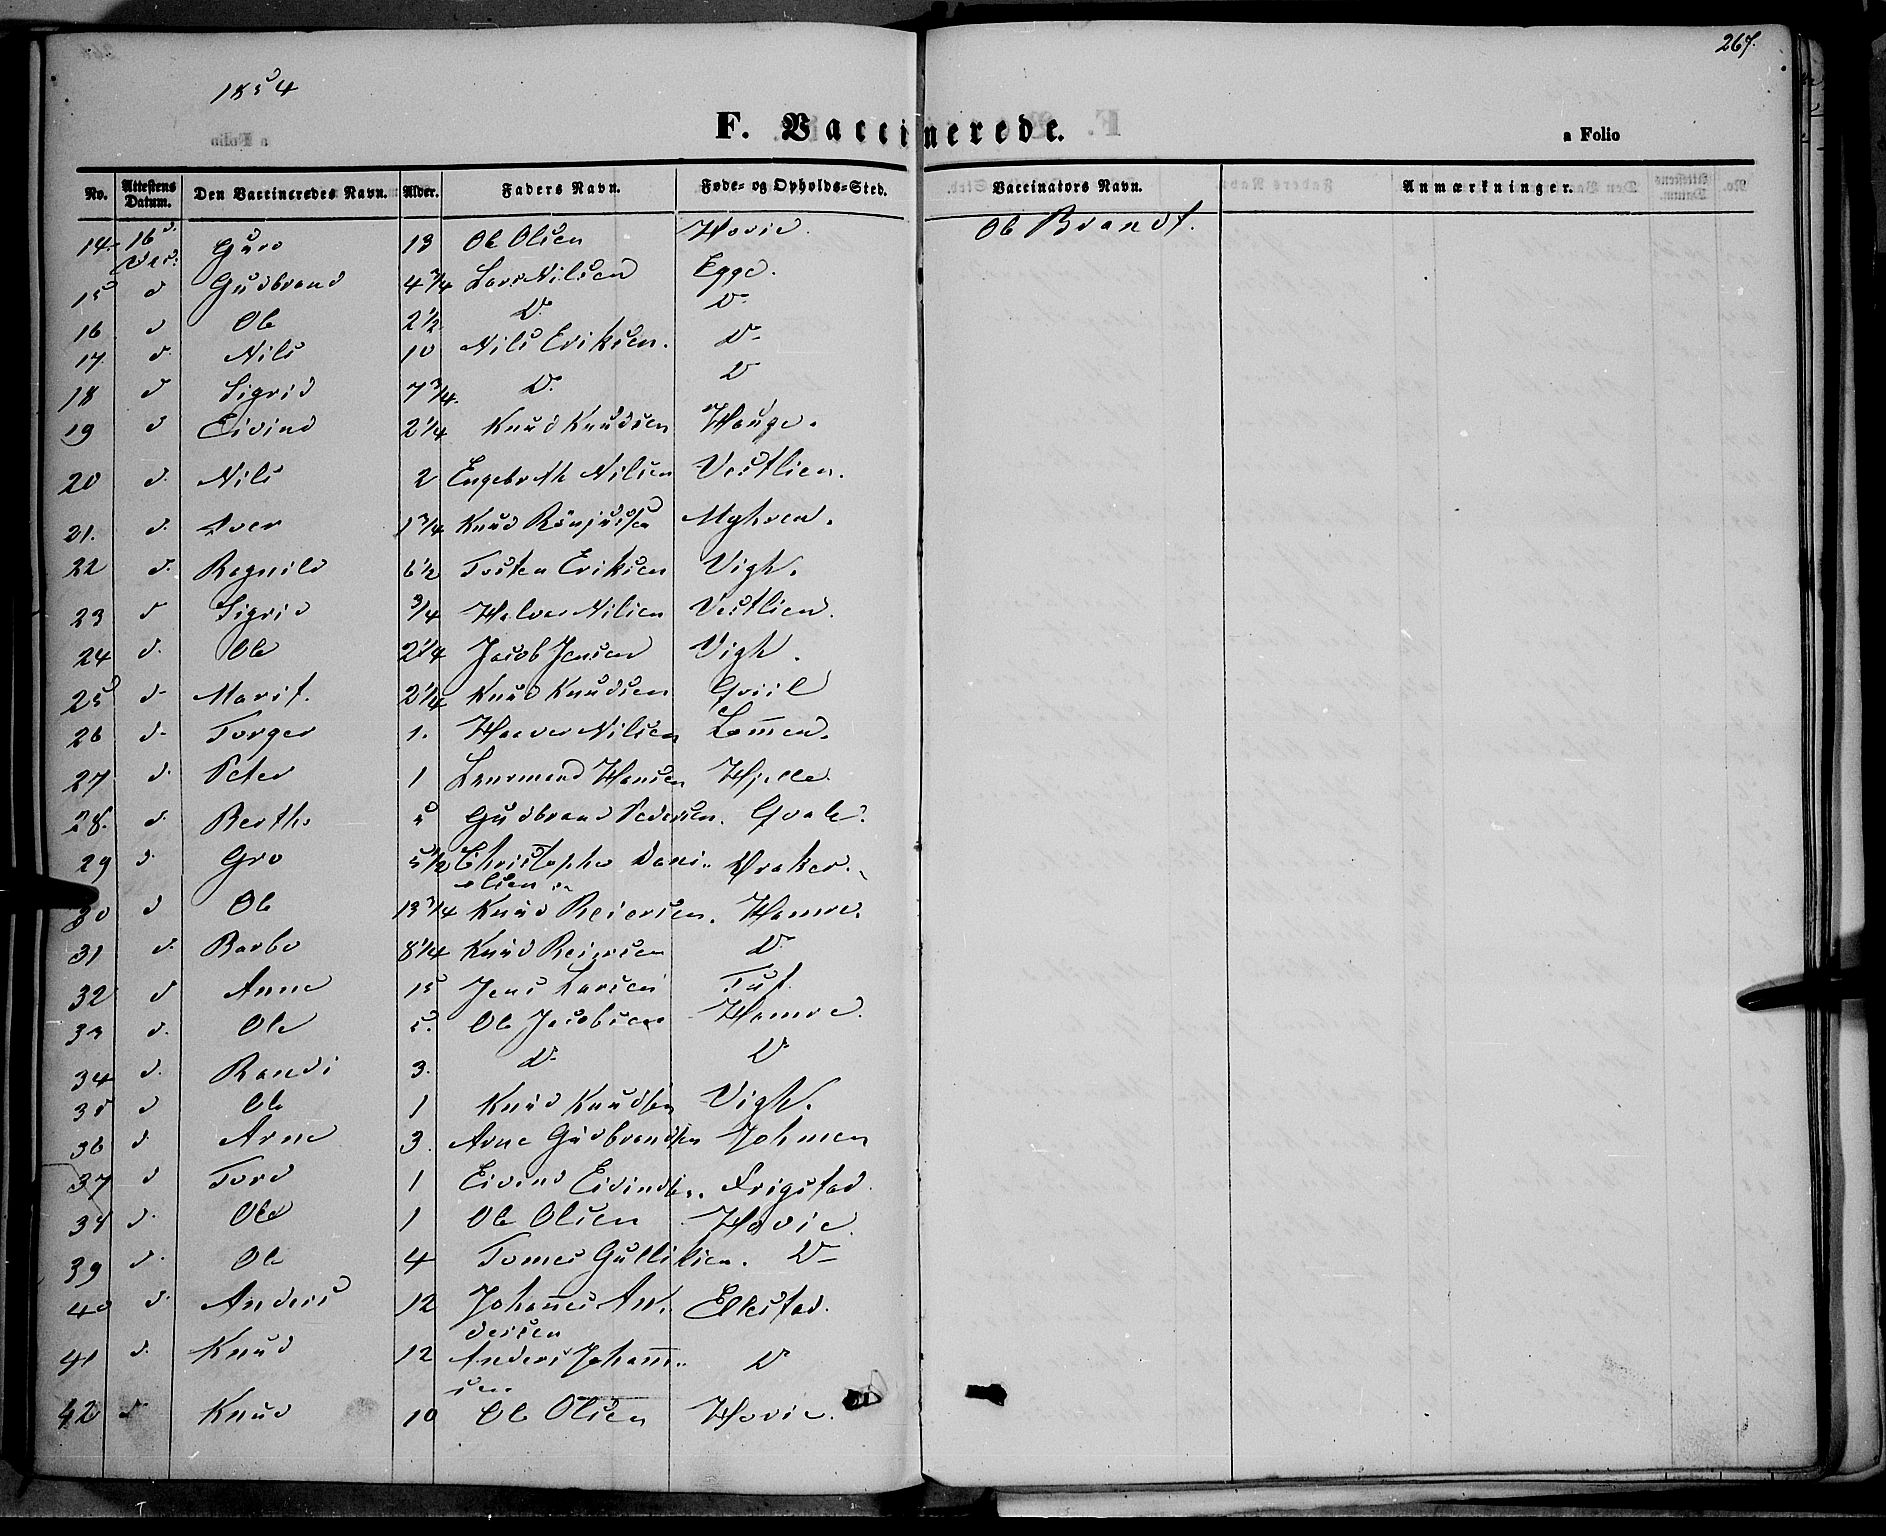 1854
267.
F. Vaccinerede.
a Folio
No. Attestens Datum. Den Vaccineredes Navn. Alder. Faders Navn. Føde- og Opholds-Sted. Vaccinators Navn. Anmærkninger.
14. 16d. Guro 13 Ole Olsen Hovie. Ole Brandt.
15 d Gudbrand 4 3/4 Lars Nilsen Egge.
16 d Ole 2 1/2 D. D.
17. d. Nils 10 Nils Eriksen. D.
18 d Sigrid 7 3/4. D. D
19 d Eivind 2 1/4 Knud Knudsen Hauge.
20 d. Nils 2 Engebreth Nilsen Vestlien.
21. d. Iver 1 3/4 Knud
22 d. Ragnild 6 1/2 Tosten Eriksen Vigh.
23 d Sigrid 3/4 Halvor Nilsen Vestlien.
24 d. Ole 2 1/4 Jacob Jensen Vigh.
25 d. Marit. 2 1/4 Knud Knudsen Qviil
26 d. Torger 1. Haavor Nilsen Lomen.
27 d. Peter 1 Hansen Hjelle
28. d. Berthe 5 Gudbrand Pedersen. Qvale.
29 d. Gro 5 1/2 Christopher Dani-
elsen Draker.
30 d Ole 13 3/4 Knud Reiersen. Hamre.
31 d. Barbo 8 1/4 Knud Reiersen D.
32 d Anne 15 Jens Larsen Tuf.
33 d. Ole 5. Ole Jacobsen Hamre.
34 d. Randi 3. D. D
35 d Ole 1 Knud Knudsen Vigh.
36 d. Arne 3. Arne Gudbrandsen Johmen
37 d Tord 1 Eivind Eivindsen. Frigstad.
38 d. Ole 1 Ole Olsen Hovie.
39 d. Ole 4 Tomes Gulliksen. D
40 d. Anders 12 Johannes An-
dersen Ellestad.
41 d. Knud 12 Anders Johann-
sen D
42 d. Knud 10 Ole Olsen Hovie.